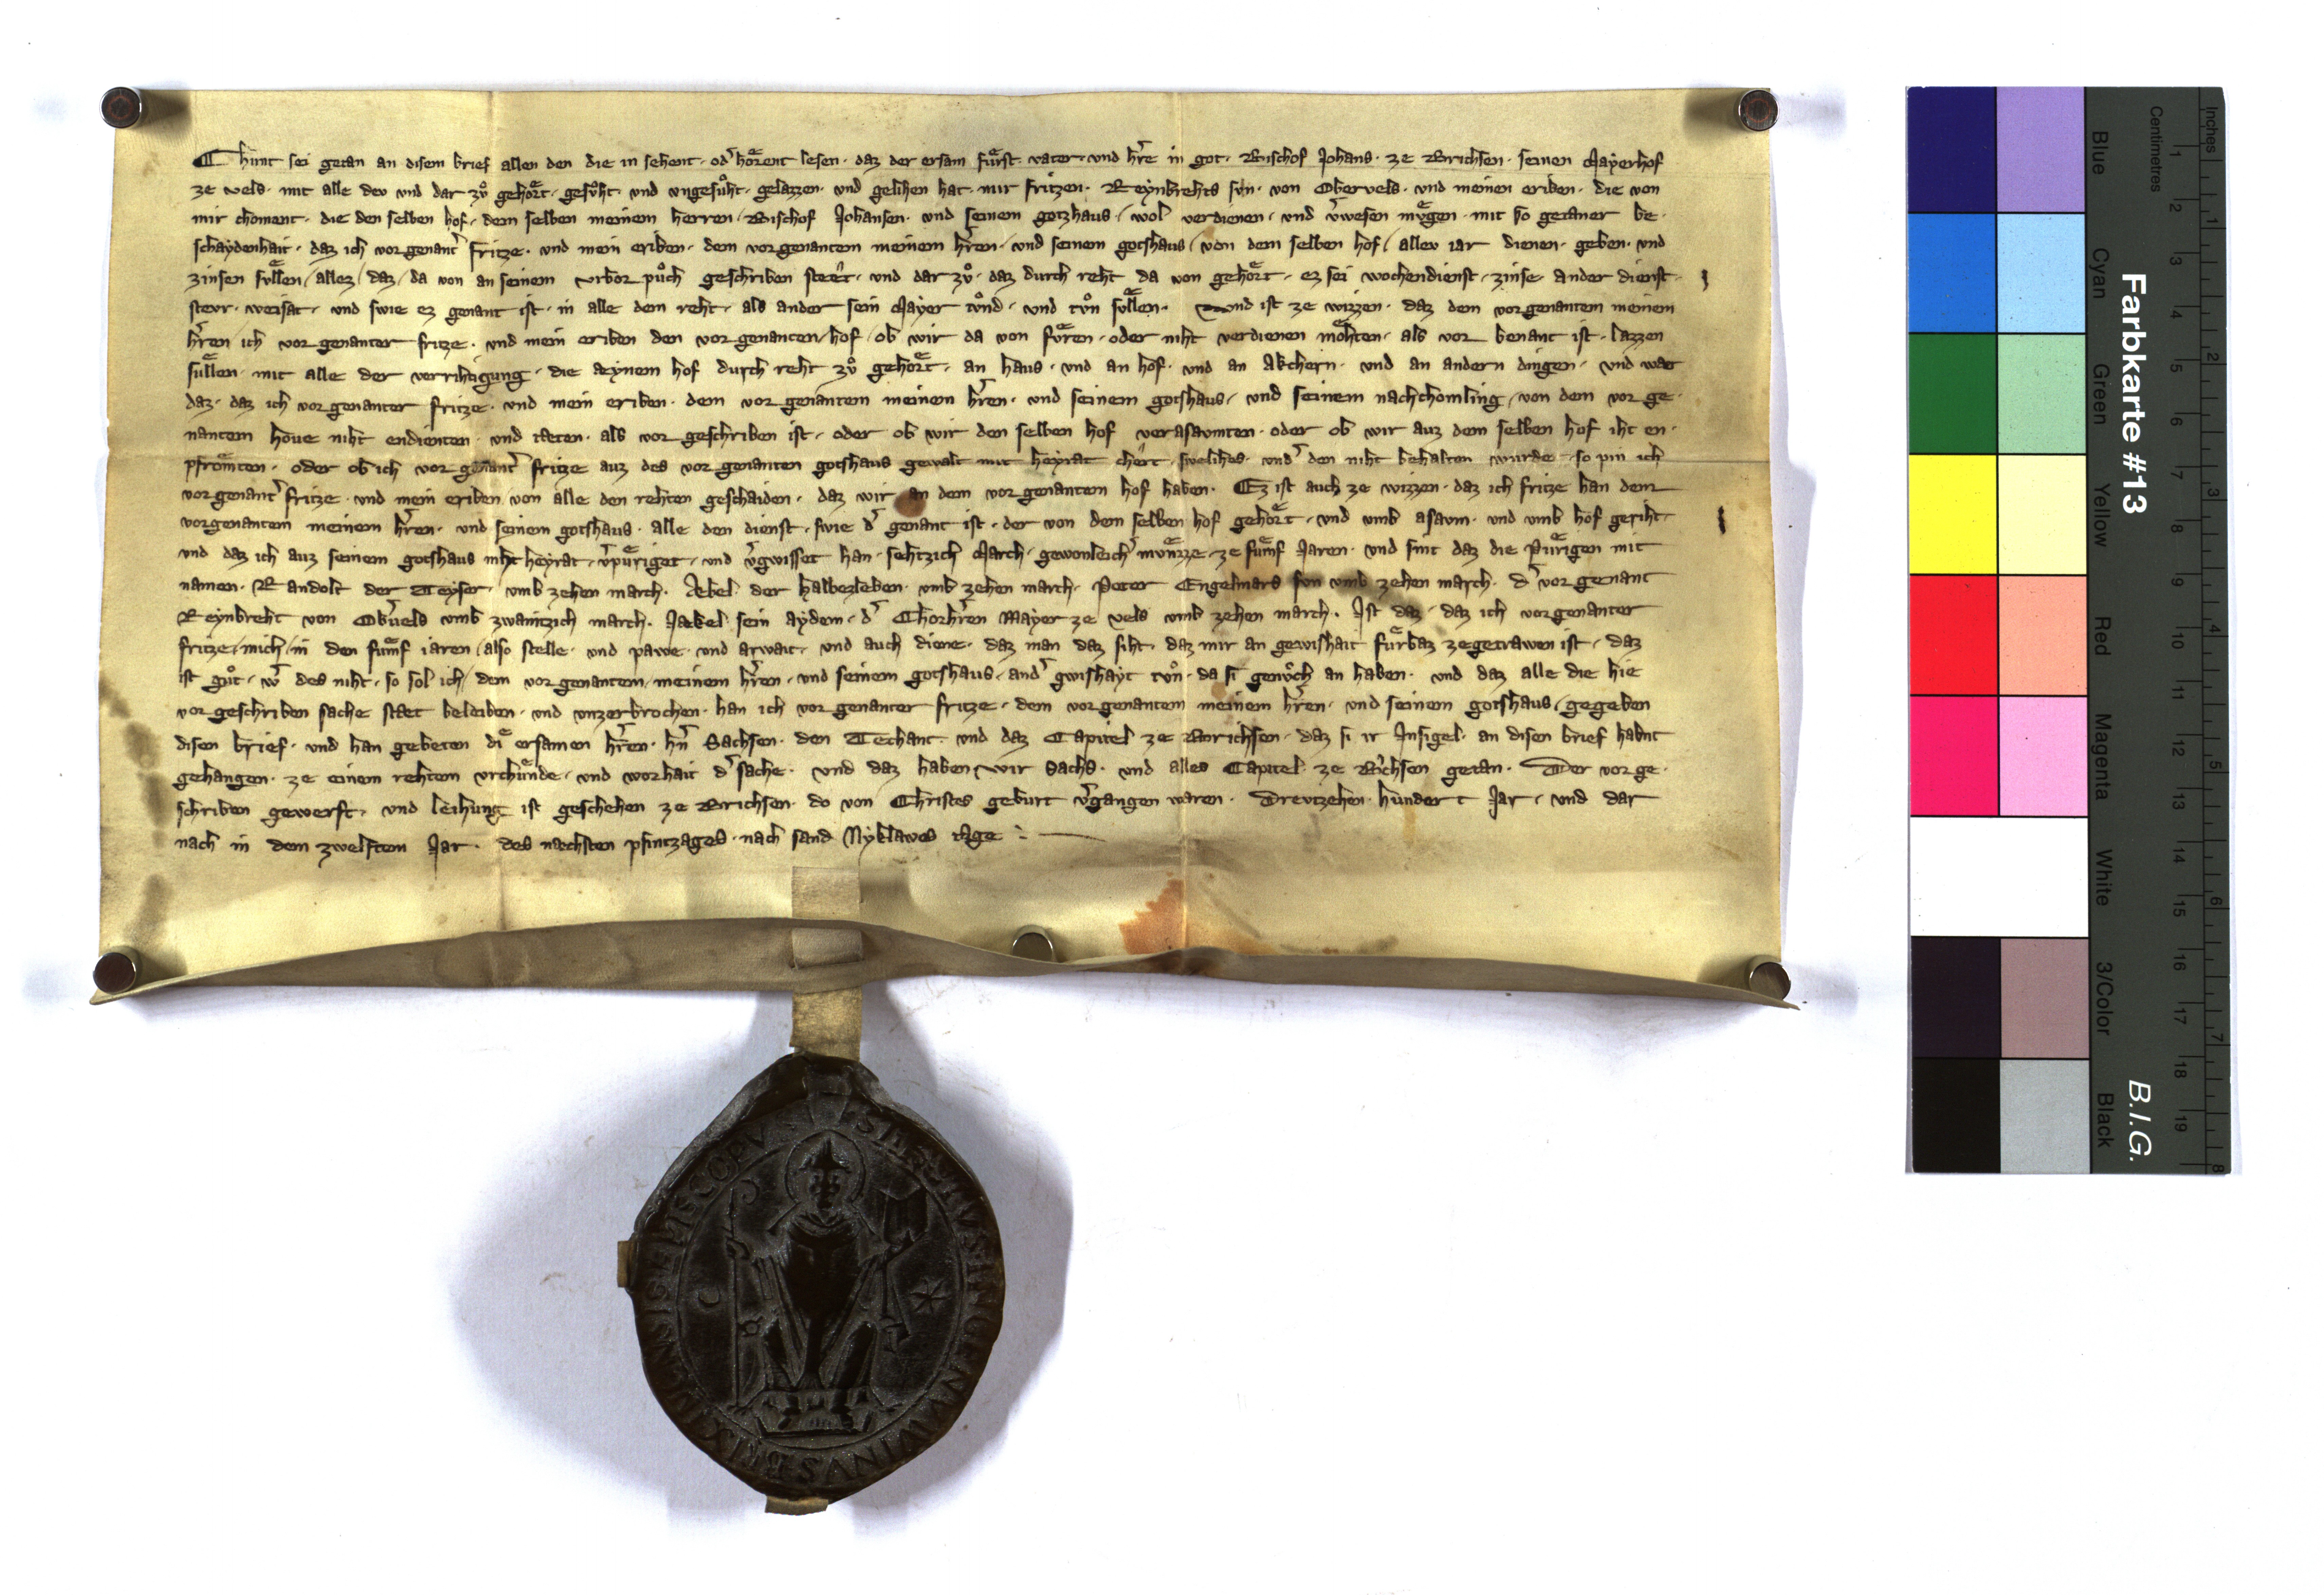 Chunt sei getan an disem brief allen den die in sehent · od͛ hoͤrent lesen · daz der ersam fuͤrst vater · und hr̄e in got · Bischof Johans · ze Brichsen · seinen Mayerhof
ze vels · mit alle dev und dar zvͦ gehoͤrt · gesvͦht · und vngesuͦht · gelazzen · und gelihen hat · mir fritzen · Reynbrehts svn · von Obervels · und meinen eriben · die von
mir choment · die den selben hof · dem selben meinem herren / Bischof Johansen · und seinem gotzhaus / wol verdienen / und v͛wesen mvͤgen · mit so getaner be·
schaydenhait · daz ich vorgenant͛ fritze · und mein eriben · dem vorgenantem meinem hr̄en · und seinem gotshaus / von dem selben hof / allev iar dienen · geben · und
zinsen svͤllen / allez / daz / da von an seinem vrbor puͦch geschriben steet · und dar zvͦ · daz durch reht da von gehoͤrt · ez sei wochendienst · zinse · ander dienst ·
stevr · weisat · und swie ez genant ist · in alle dem reht · als ander sein Mayer tvͦnd · und tvͦn svͤllen · Und ist ze wizzen · daz dem vorgenantem meinem
hr̄en ich vorgenanter fritze · und mein eriben den vorgenanten / hof / ob wir da von fuͤren · oder niht verdienen moͤhten · als vor benant ist · lazzen
suͤllen · mit alle der verrihtigung · die aynem hof durch reht zvͦ gehoͤrt · an haus · und an hof · und an akchern · und an andern dingen · und wær
daz · daz ich vorgenanter fritze · und mein eriben · dem vorgenantem meinem hr̄en · und seinem gotshaus / und seinem nachchomling / von dem vorge·
nantem hove niht endienten · und tæten · als vor geschriben ist · oder ob wir den selben hof verasavmten · oder ob wir auz dem selben hof iht en·
pfroͤmten · oder ob ich vorgenant͛ fritze auz des vorgenanten gotshaus gewalt mit heyrat chert · swelihes · und͛ den niht behalten wurde · so pin ich
vorgenant͛ fritze · und mein eriben / von alle den rehten geschaiden · daz wir an dem vorgenantem hof haben · Ez ist auch ze wizzen · daz ich fritze han dem
vorgenantem meinem hr̄en · und seinem gotshaus · alle den dienst · swie d͛ genant ist · der von dem selben hof gehoͤrt · und umb asavm · und umb hof geriht ·
und daz ich auz seinem gotshaus niht heyrat · v͛puͤriget · und v͛gwisset han · sehtzich March · gewonleich͛ mvͤnzze · ze fuͤmf Jaren · und sint daz die Puͤrigen mit
namen · Randolt der Teyser · umb zehen march · Aebel der halbezleben · umb zehen march · Peter Engelmars svn umb zehen march · d͛ vorgenant
Reynbreht von Ob͛vels umb zwaintzich march · Jækel sein aydem · d͛ Chorhr̄en Mayer ze vels umb zehen march · Ist daz · daz ich vorgenanter
fritze / mich / in den fuͤmf iaren / also stelle · und pawe · und arwait · und auch diene · daz man daz siht · daz mir an gewishait fuͤrbaz zegetrawen ist · daz
ist guͦt · w͛ des niht · so sol ich / dem vorgenantem / meinem hr̄en · und seinem gotshaus · and͛ gwishayt tvͦn · da si genvͦch an haben · und daz alle die hie
vorgeschriben sache stæt beleiben · und vnzerbrochen · han ich vorgenanter fritze · dem vorgenantem meinem hr̄en · und seinem gotshaus / gegeben
disen brief · und han gebeten di ersamen hr̄en · hn̄ Sachsen · den Techant · und daz Capitel ze Brichsen · daz si ir Insigel · an disen brief habnt
gehangen · ze einem rehtem vrchuͤnde · und worhait d͛ sache · und daz haben wir Sachs · und alles Capitel · ze Brichsen getan · Der vorge·
schriben gewerft · und leihung ist geschehen ze Brichsen · do von Christes geburt v͛gangen waren · Drevtzehen hundert Jar · und dar
nach in dem zwelftem Jar · des næchsten pfintzages · nach sand Nyklawes tage ·
BRIXINENSIS EPISCOPVS
INGENVWINVS
Farbkarte #13
B.I.G.
Inches
Centimetres
Blue Cyan Green Yellow Red Magenta White 3/Color Black
1 2 3 4 5 6 7 8 9 10 11 12 13 14 15 16 17 18 19
1 2 3 4 5 6 7 8